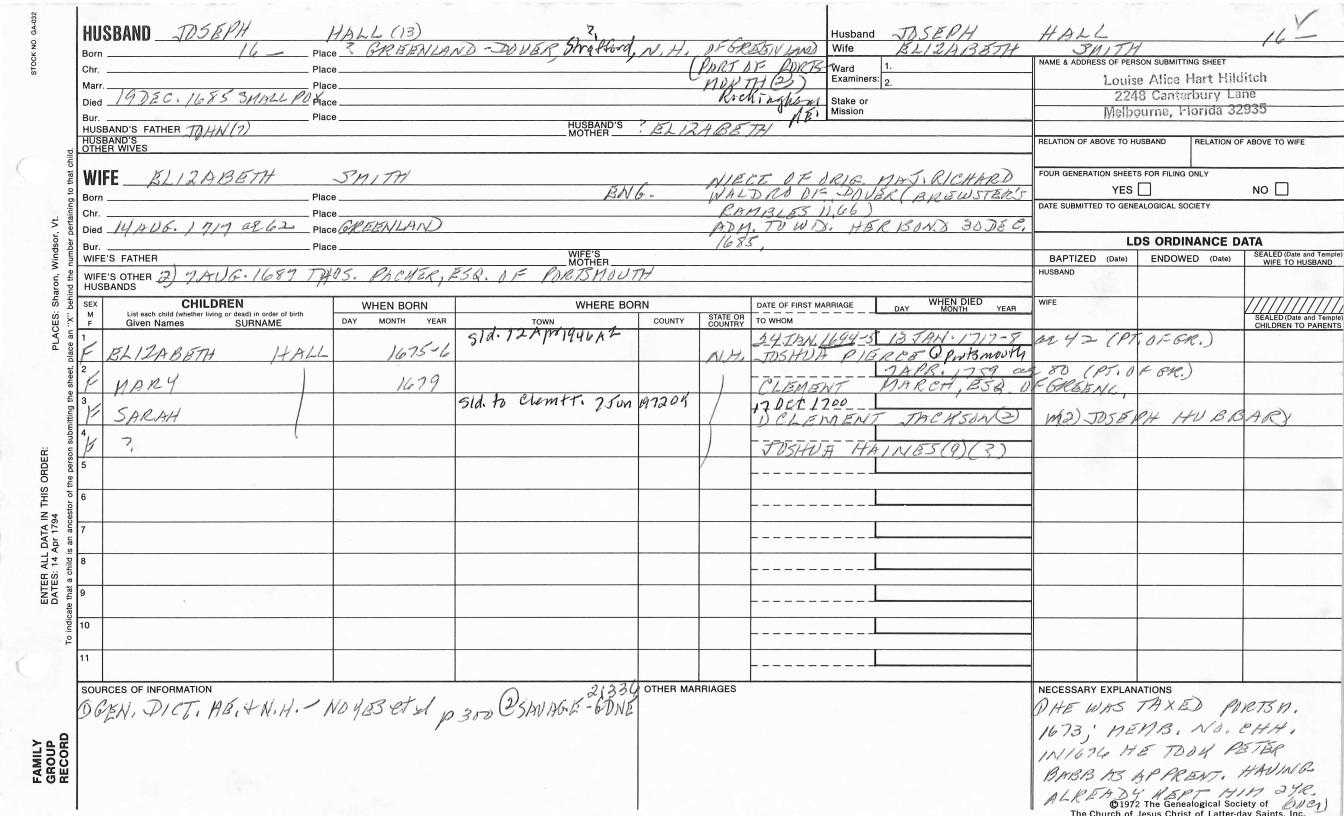 STOCK NO GA-032
HUSBAND JOSEPH HALL (13)
Born 16 — Place ? GREENLAND - DOVER, Strafford, N.H. OF GREENLAND
?
Chr. Place (PART OF PORTS-
Marr. Place MOUTH (2)
Died 19 DEC. 1685 SMALL POX Place Rockingham
Bur. Place
HUSBAND'S FATHER JOHN (7) HUSBAND'S MOTHER ? ELIZABETH
HUSBAND'S OTHER WIVES
Husband JOSEPH HALL 16 —
Wife ELIZABETH SMITH
Ward Examiners: 1. 2.
Stake or Mission
NAME & ADDRESS OF PERSON SUBMITTING SHEET
Louise Alice Hart Hilditch
2248 Canterbury Lane
Melbourne, Florida 32935
RELATION OF ABOVE TO HUSBAND RELATION OF ABOVE TO WIFE
FOUR GENERATION SHEETS FOR FILING ONLY
YES NO
DATE SUBMITTED TO GENEALOGICAL SOCIETY
WIFE ELIZABETH SMITH NIECE OF ORIG. MAJ. RICHARD
Born Place ENG. WALDRO OF DOVER (BREWSTER'S
Chr. Place RAMBLES 11, 66)
Died 14 AUG. 1717 ae 62 Place GREENLAND ADM. TO WID. HER BOND 30 DEC.
Bur. Place 1685,
WIFE'S FATHER WIFE'S MOTHER
WIFE'S OTHER HUSBANDS 2) 7 AUG. 1687 THOS. PACKER, ESQ. OF PORTSMOUTH
LDS ORDINANCE DATA
BAPTIZED (Date) ENDOWED (Date) SEALED (Date and Temple) WIFE TO HUSBAND
HUSBAND
WIFE
SEALED (Date and Temple) CHILDREN TO PARENTS
SEX M F CHILDREN WHEN BORN WHERE BORN DATE OF FIRST MARRIAGE WHEN DIED
List each child (whether living or dead) in order of birth
Given Names SURNAME DAY MONTH YEAR TOWN COUNTY STATE OR COUNTRY TO WHOM DAY MONTH YEAR
Sld. 12 Apr 1946 AZ 24 JAN. 1694-5 13 JAN. 1717-8 ae 42 (PT. OF GR.)
F ELIZABETH HALL 1675-6 N.H. JOSHUA PIERCE @ Portsmouth
2 7 APR. 1759 ae 80 (PT. OF GR.)
F MARY 1679 CLEMENT MARCH, ESQ. OF GREENL,
3 Sld. to Clemtt. 7 Jun 17 OCT 1700
F SARAH CLEMENT JACKSON (2) m 2) JOSEPH HUBBARD
4
F ? JOSHUA HAINES (9) (3)
5
6
7
8
9
10
11
SOURCES OF INFORMATION 21334
① GEN. DICT. ME. & N.H. — NOYES et al p 300 ② SAVAGE - GDNE
OTHER MARRIAGES
NECESSARY EXPLANATIONS
① HE WAS TAXED PORTSM.
1673; MEMB. NO. CHH.
IN 1676 HE TOOK PETER
BABB AS APPRENT. HAVING
ALREADY KEPT HIM 2 YR.
(over)
©1972 The Genealogical Society of
The Church of Jesus Christ of Latter-day Saints, Inc.
ENTER ALL DATA IN THIS ORDER:
DATES: 14 Apr 1794 PLACES: Sharon, Windsor, Vt.
To indicate that a child is an ancestor of the person submitting the sheet, place an "X" behind the number pertaining to that child.
FAMILY GROUP RECORD